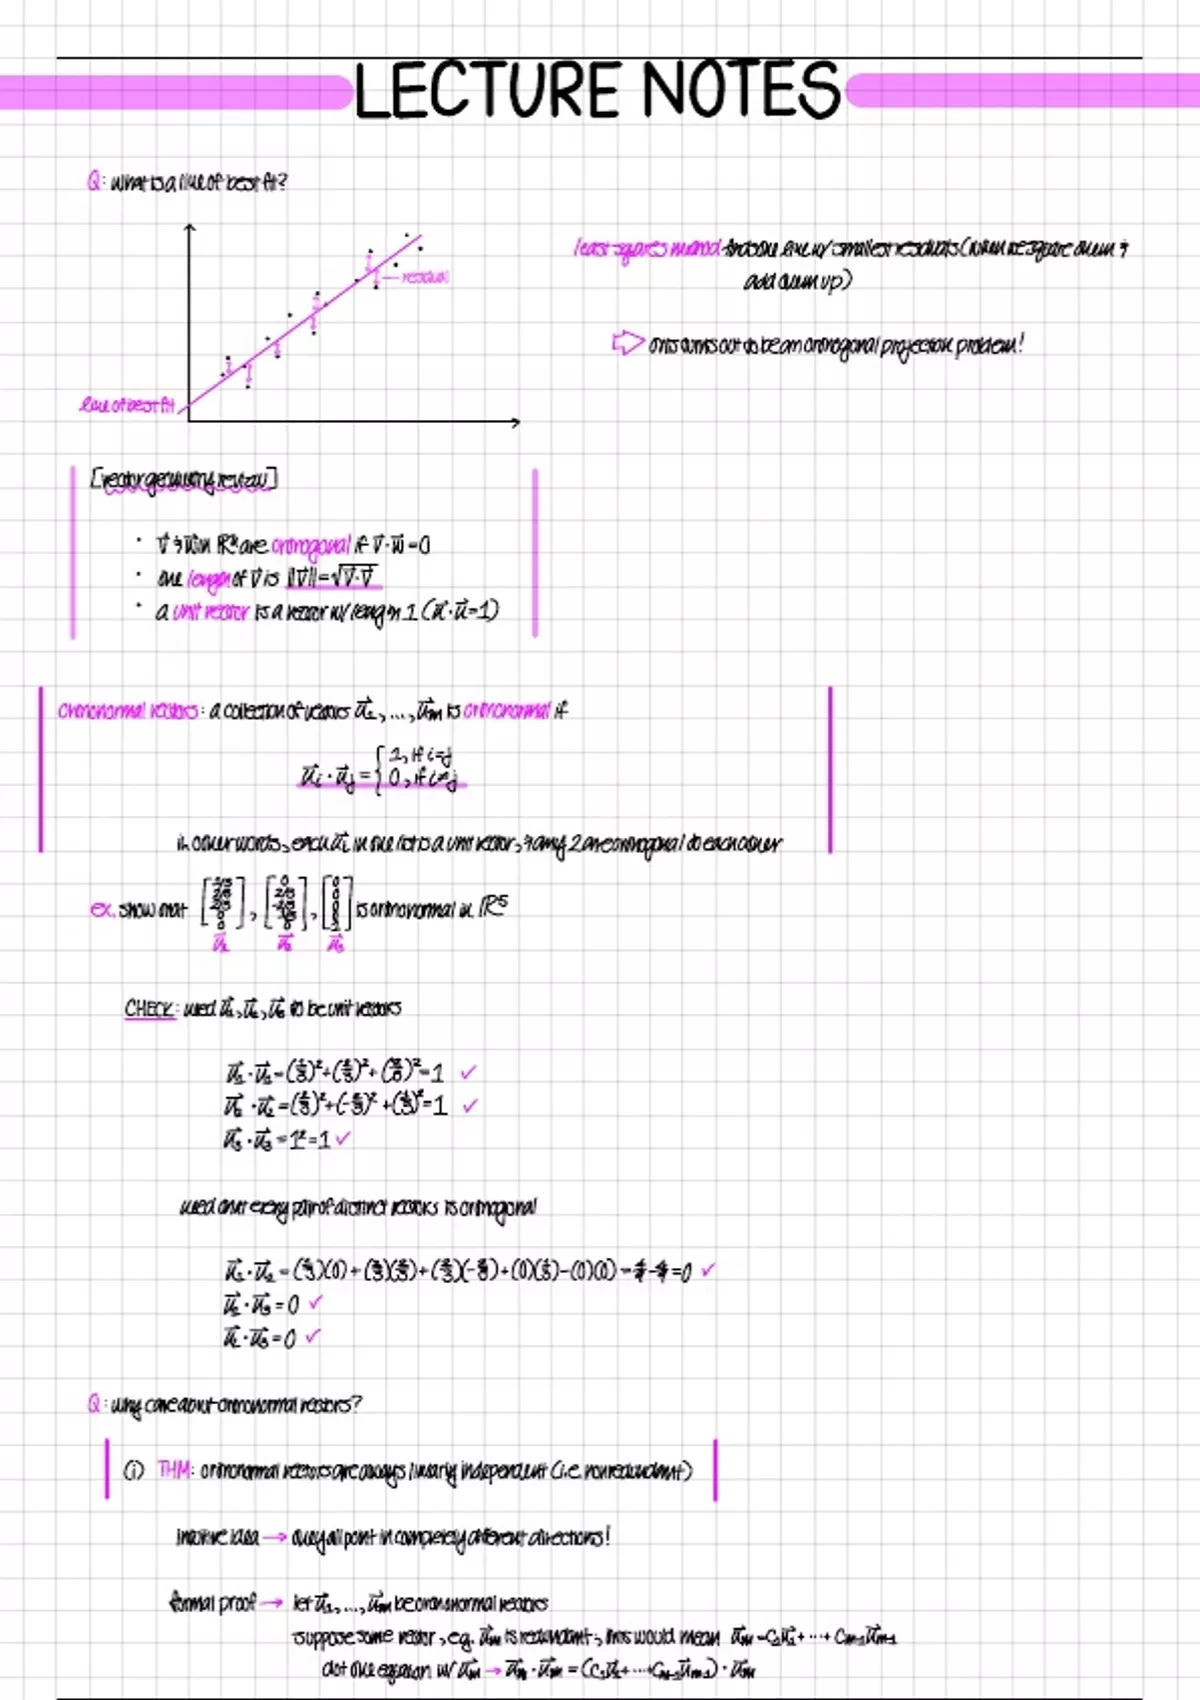 LECTURE NOTES
Q: what is a line of best fit?
least squares method finds the line w/ smallest residuals (when we square them &
add them up)
residual
⇨ this turns out to be an orthogonal projection problem!
line of best fit
[vector geometry review]
· v⃗ & w⃗ in ℝⁿ are orthogonal if v⃗·w⃗=0
· the length of v⃗ is ||v⃗||=√v⃗·v⃗
· a unit vector is a vector w/ length 1 (u⃗·u⃗=1)
orthonormal vectors: a collection of vectors u⃗₁, ..., u⃗m is orthonormal if
u⃗i·u⃗j = { 1, if i=j
0, if i≠j
in other words, each u⃗i in the list is a unit vector, & any 2 are orthogonal to each other
ex. show that , , is orthonormal in ℝ⁵
u⃗₁ u⃗₂ u⃗₃
CHECK: need u⃗₁, u⃗₂, u⃗₃ to be unit vectors
u⃗₁·u⃗₁=(1/3)²+(2/3)²+(2/3)²=1 ✓
u⃗₂·u⃗₂=(2/3)²+(-2/3)²+(1/3)²=1 ✓
u⃗₃·u⃗₃=1²=1 ✓
need that every pair of distinct vectors is orthogonal
u⃗₁·u⃗₂= =0 ✓
=0 ✓
u⃗₂·u⃗₃=0 ✓
Q: why care about orthonormal vectors?
① THM: orthonormal vectors are always linearly independent (i.e. nonredundant)
intuitive idea → they all point in completely different directions!
formal proof → let u⃗₁, ..., u⃗m be orthonormal vectors
suppose some vector, e.g. u⃗m is redundant, this would mean u⃗m=c₁u⃗₁+···+cm-1u⃗m-1
dot the equation w/ u⃗m → u⃗m·u⃗m=(c₁u⃗₁+···+cm-1u⃗m-1)·u⃗m